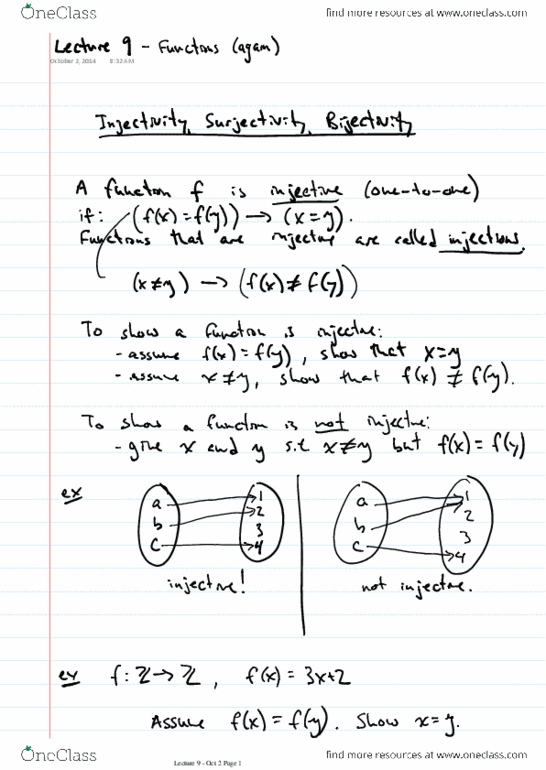 OneClass
find more resources at www.oneclass.com
Lecture 9 - Functions (again)
October 2, 2014 8:32 AM
Injectivity, Surjectivity, Bijectivity
A function f is injective (one-to-one)
if: (f(x) = f(y)) → (x = y).
Functions that are injective are called injections.
(x ≠ y) → (f(x) ≠ f(y))
To show a function is injective:
- assume f(x) = f(y), show that x = y
- Assume x ≠ y, show that f(x) ≠ f(y).
To show a function is not injective:
- give x and y s.t. x ≠ y but f(x) = f(y)
ex
a 1
b 2
3
c 4
injective!
a 1
b 2
3
c 4
not injective.
ex f: ℤ → ℤ, f(x) = 3x+2
Assume f(x) = f(y). Show x = y.
OneClass
Lecture 9 - Oct 2 Page 1
find more resources at www.oneclass.com